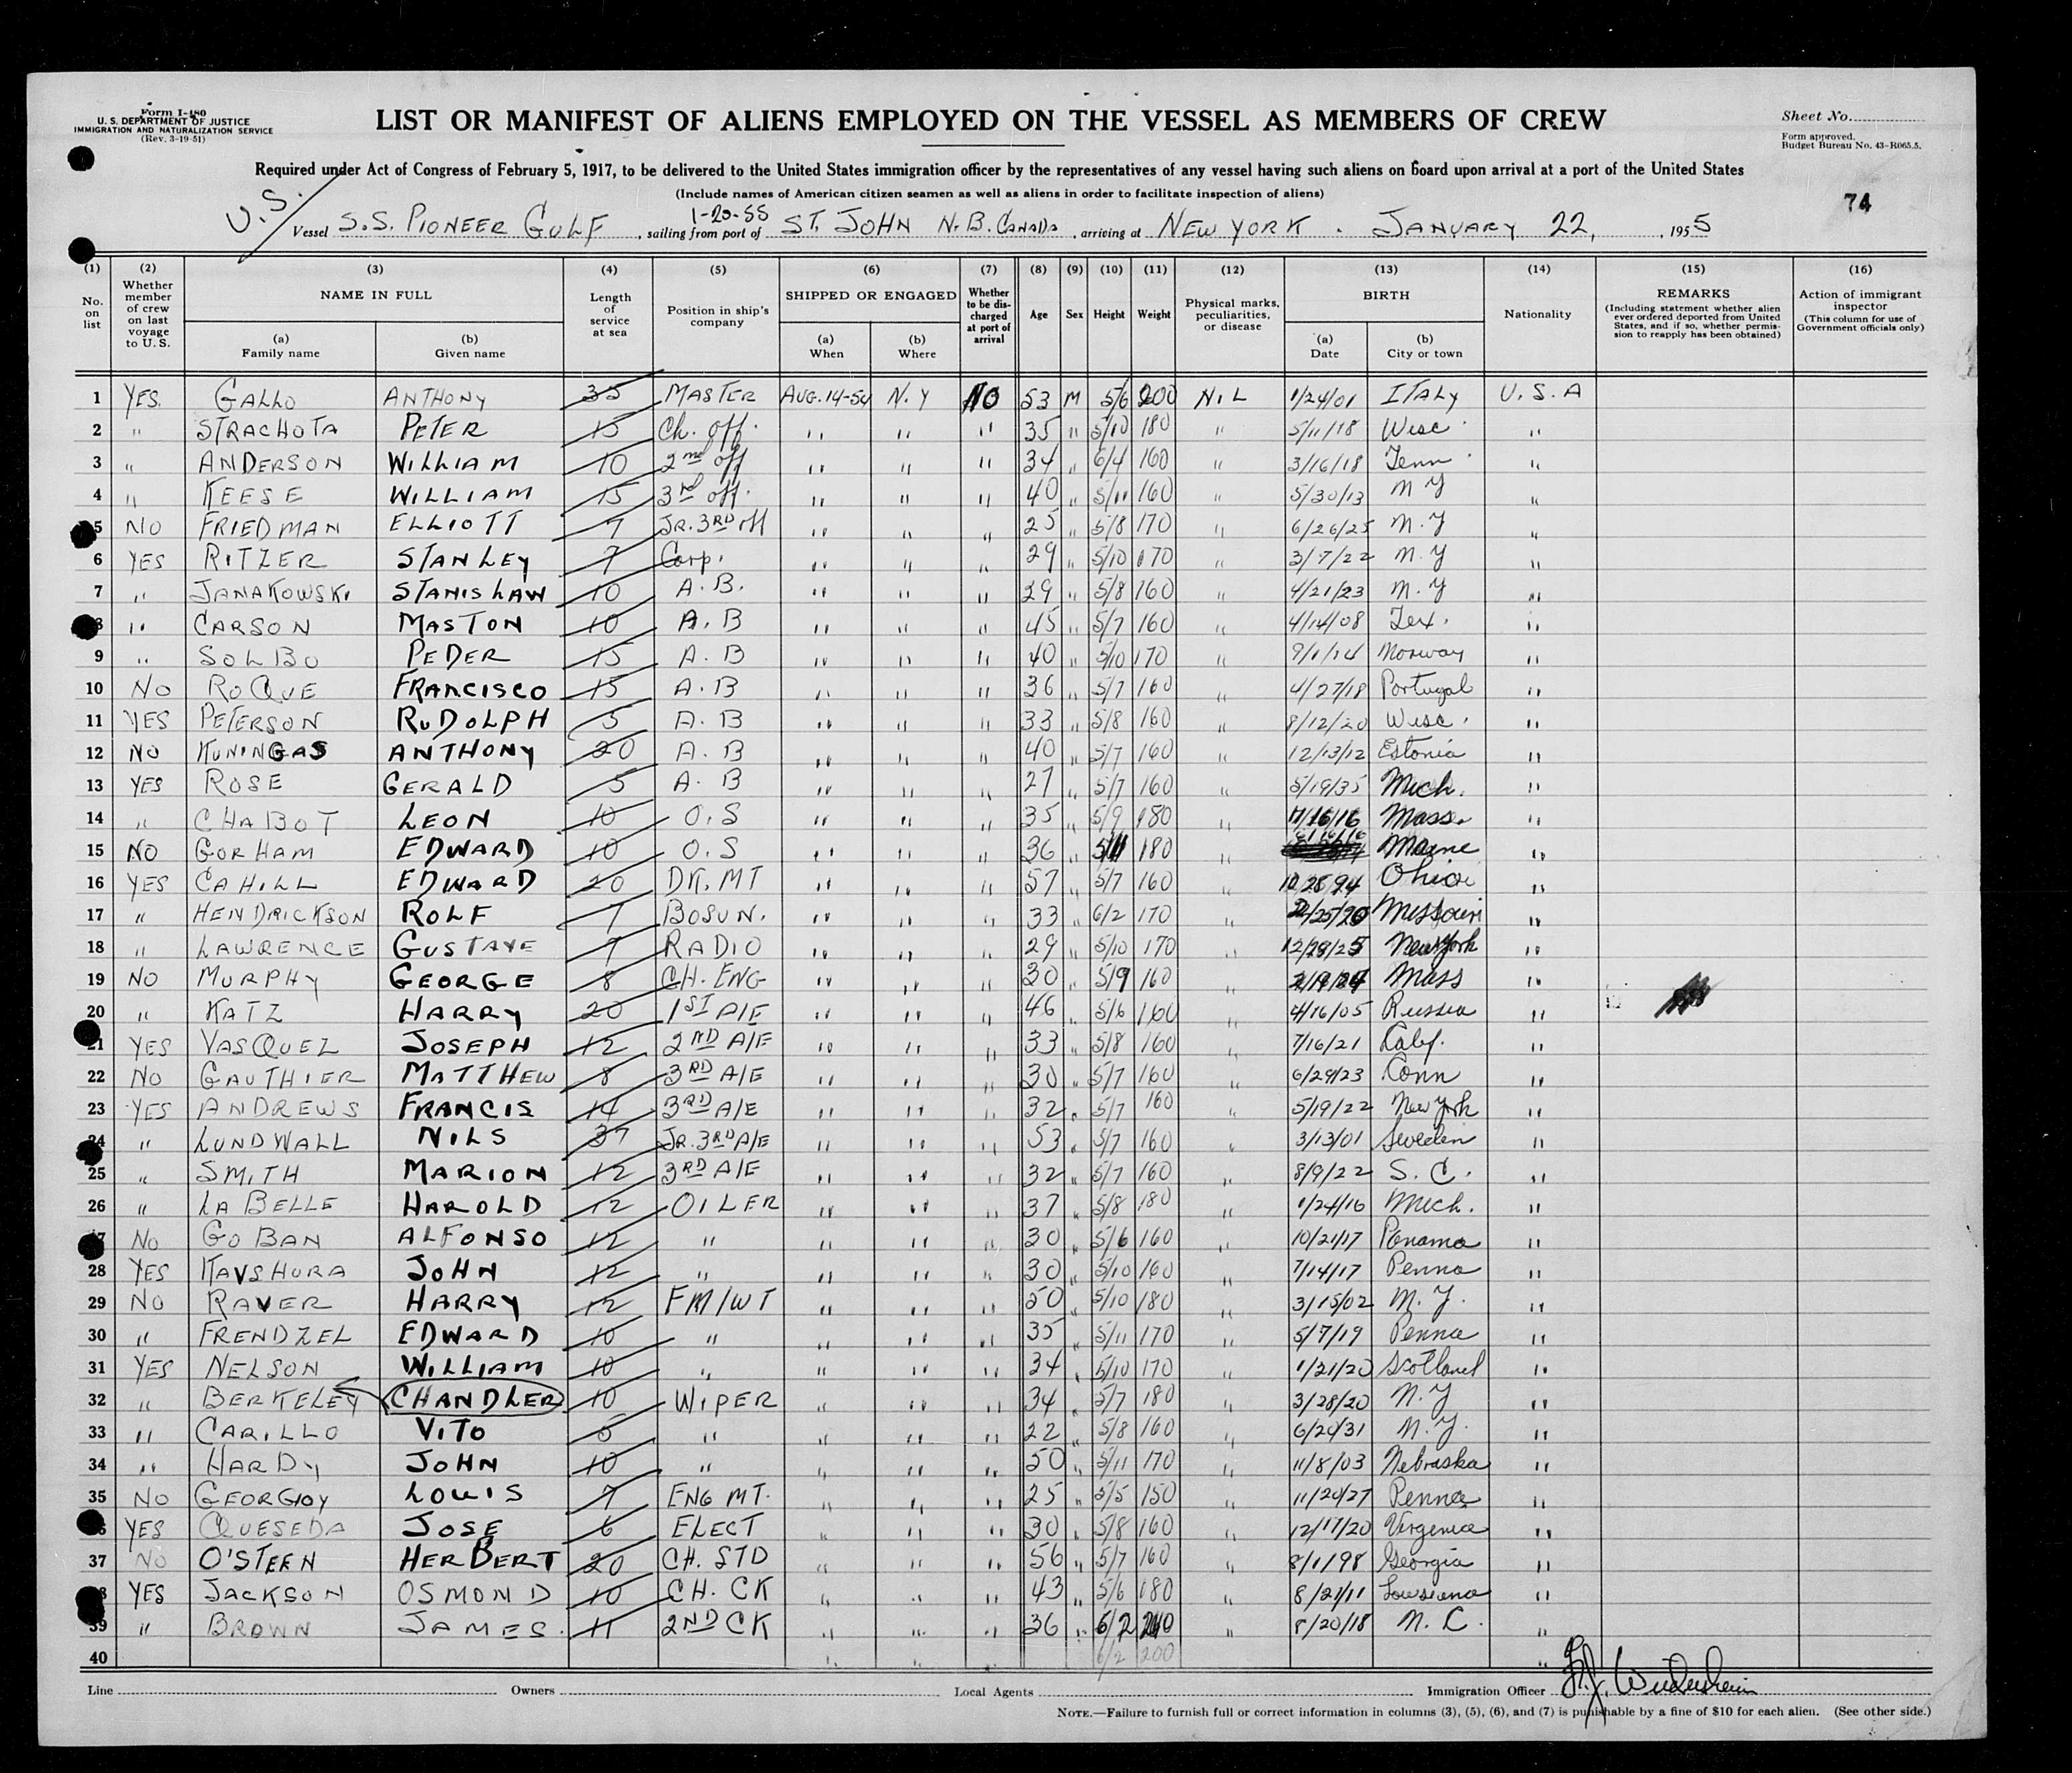 Form I-480
U. S. DEPARTMENT OF JUSTICE
IMMIGRATION AND NATURALIZATION SERVICE
(Rev. 3-19-51)
LIST OR MANIFEST OF ALIENS EMPLOYED ON THE VESSEL AS MEMBERS OF CREW
Sheet No.
Form approved.
Budget Bureau No. 43-R065.5.
Required under Act of Congress of February 5, 1917, to be delivered to the United States immigration officer by the representatives of any vessel having such aliens on board upon arrival at a port of the United States
(Include names of American citizen seamen as well as aliens in order to facilitate inspection of aliens)
74
U.S.
1-20-55
Vessel S.S. PIONEER GULF, sailing from port of ST. JOHN N.B. CANADA, arriving at NEW YORK. JANUARY 22, 1955
(1) (2) (3) (4) (5) (6) (7) (8) (9) (10) (11) (12) (13) (14) (15) (16)
No. on list | Whether member of crew on last voyage to U. S. | NAME IN FULL | (a) Family name | (b) Given name | Length of service at sea | Position in ship's company | SHIPPED OR ENGAGED | (a) When | (b) Where | Whether to be discharged at port of arrival | Age | Sex | Height | Weight | Physical marks, peculiarities, or disease | BIRTH | (a) Date | (b) City or town | Nationality | REMARKS (Including statement whether alien ever ordered deported from United States, and if so, whether permission to reapply has been obtained) | Action of immigrant inspector (This column for use of Government officials only)
1 YES. GALLO ANTHONY 35 MASTER AUG. 14-54 N.Y NO 53 M 5/6 200 NIL 1/24/01 ITALY U.S.A
2 " STRACHOTA PETER 15 Ch. off. " " " 35 " 5/10 180 " 5/11/18 Wisc. "
3 " ANDERSON WILLIAM 10 2nd off " " " 34 " 6/4 160 " 3/16/18 Tenn. "
4 " KEESE WILLIAM 15 3rd off. " " " 40 " 5/11 160 " 5/30/13 N Y "
5 NO FRIEDMAN ELLIOTT 7 JR. 3RD off " " " 25 " 5/8 170 " 6/26/25 N.Y "
6 YES RITZER STANLEY 7 Carp. " " " 29 " 5/10 170 3/7/22 N.Y "
7 " JANAKOWSKI STANISLAW 10 A.B. " " " 29 " 5/8 160 " 4/21/23 N.Y "
8 " CARSON MASTON 10 A.B " " " 45 " 5/7 160 " 4/14/08 Tex. "
9 " SOLBO PEDER 15 A.B " " " 40 " 5/10 170 " 9/1/14 Norway "
10 NO ROQUE FRANCISCO 15 A.B " " " 36 " 5/7 160 " 4/27/18 Portugal "
11 YES PETERSON RUDOLPH 5 A.B " " " 33 " 5/8 160 " 8/12/20 Wisc. "
12 NO KUNINGAS ANTHONY 20 A.B " " " 40 " 5/7 160 " 12/13/12 Estonia "
13 YES ROSE GERALD 5 A.B " " " 27 " 5/7 160 " 5/19/35 Mich. "
14 " CHABOT LEON 10 O.S " " " 35 " 5/9 180 " 16/16 Mass. "
15 NO GORHAM EDWARD 10 O.S " " " 36 " 5/11 180 " Maine "
16 YES CAHILL EDWARD 20 DK. MT " " " 57 " 5/7 160 " 10/28/94 Ohio "
17 " HENDRICKSON ROLF 7 BOSUN. " " " 33 " 6/2 170 " 2/25/20 Missouri "
18 " LAWRENCE GUSTAVE 7 RADIO " " " 29 " 5/10 170 " 12/28/25 New York "
19 NO MURPHY GEORGE 8 CH. ENG " " " 30 " 5/9 160 " 2/19/24 Mass "
20 " KATZ HARRY 20 1ST A/E " " " 46 " 5/6 160 " 4/16/05 Russia "
21 YES VASQUEZ JOSEPH 12 2ND A/E " " " 33 " 5/8 160 " 7/16/21 Calif. "
22 NO GAUTHIER MATTHEW 8 3RD A/E " " " 30 " 5/7 160 " 6/29/23 Conn "
23 YES ANDREWS FRANCIS 14 3RD A/E " " " 32 " 5/7 160 " 5/19/22 New York "
24 " LUNDWALL NILS 37 JR. 3RD A/E " " " 53 " 5/7 160 " 3/13/01 Sweden "
25 " SMITH MARION 12 3RD A/E " " " 32 " 5/7 160 " 8/9/22 S.C. "
26 " LA BELLE HAROLD 12 OILER " " " 37 " 5/8 180 " 1/24/16 Mich. "
27 NO GOBAN ALFONSO 12 " " " " 30 " 5/6 160 " 10/21/17 Panama "
28 YES KAVSHURA JOHN 12 " " " " 30 " 5/10 160 " 7/14/17 Penna "
29 NO RAVER HARRY 12 FM/WT " " " 50 " 5/10 180 " 3/15/02 N.Y. "
30 " FRENDZEL EDWARD 10 " " " " 35 " 5/11 170 " 5/7/19 Penna "
31 YES NELSON WILLIAM 10 " " " " 34 " 5/10 170 " 1/21/20 Scotland "
32 " BERKELEY CHANDLER 10 WIPER " " " 34 " 5/7 180 " 3/28/20 N.Y "
33 " CARILLO VITO 5 " " " " 22 " 5/8 160 " 6/24/31 N.Y. "
34 " HARDY JOHN 10 " " " " 50 " 5/11 170 " 11/8/03 Nebraska "
35 NO GEORGIOY LOUIS 7 ENG MT. " " " 25 " 5/5 150 " 11/20/27 Penna "
YES QUESEDA JOSE 6 ELECT " " " 30 " 5/8 160 " 12/17/20 Virginia "
37 NO O'STEEN HERBERT 20 CH. STD " " " 56 " 5/7 160 " 8/1/98 Georgia "
YES JACKSON OSMOND 10 CH. CK " " " 43 " 5/6 180 " 8/21/11 Louisiana "
39 " BROWN JAMES 11 2ND CK " " " 36 " 6/2 " 8/20/18 N.C. "
40 " " " 6/2 200 "
Line Owners Local Agents Immigration Officer
NOTE.—Failure to furnish full or correct information in columns (3), (5), (6), and (7) is punishable by a fine of $10 for each alien. (See other side.)